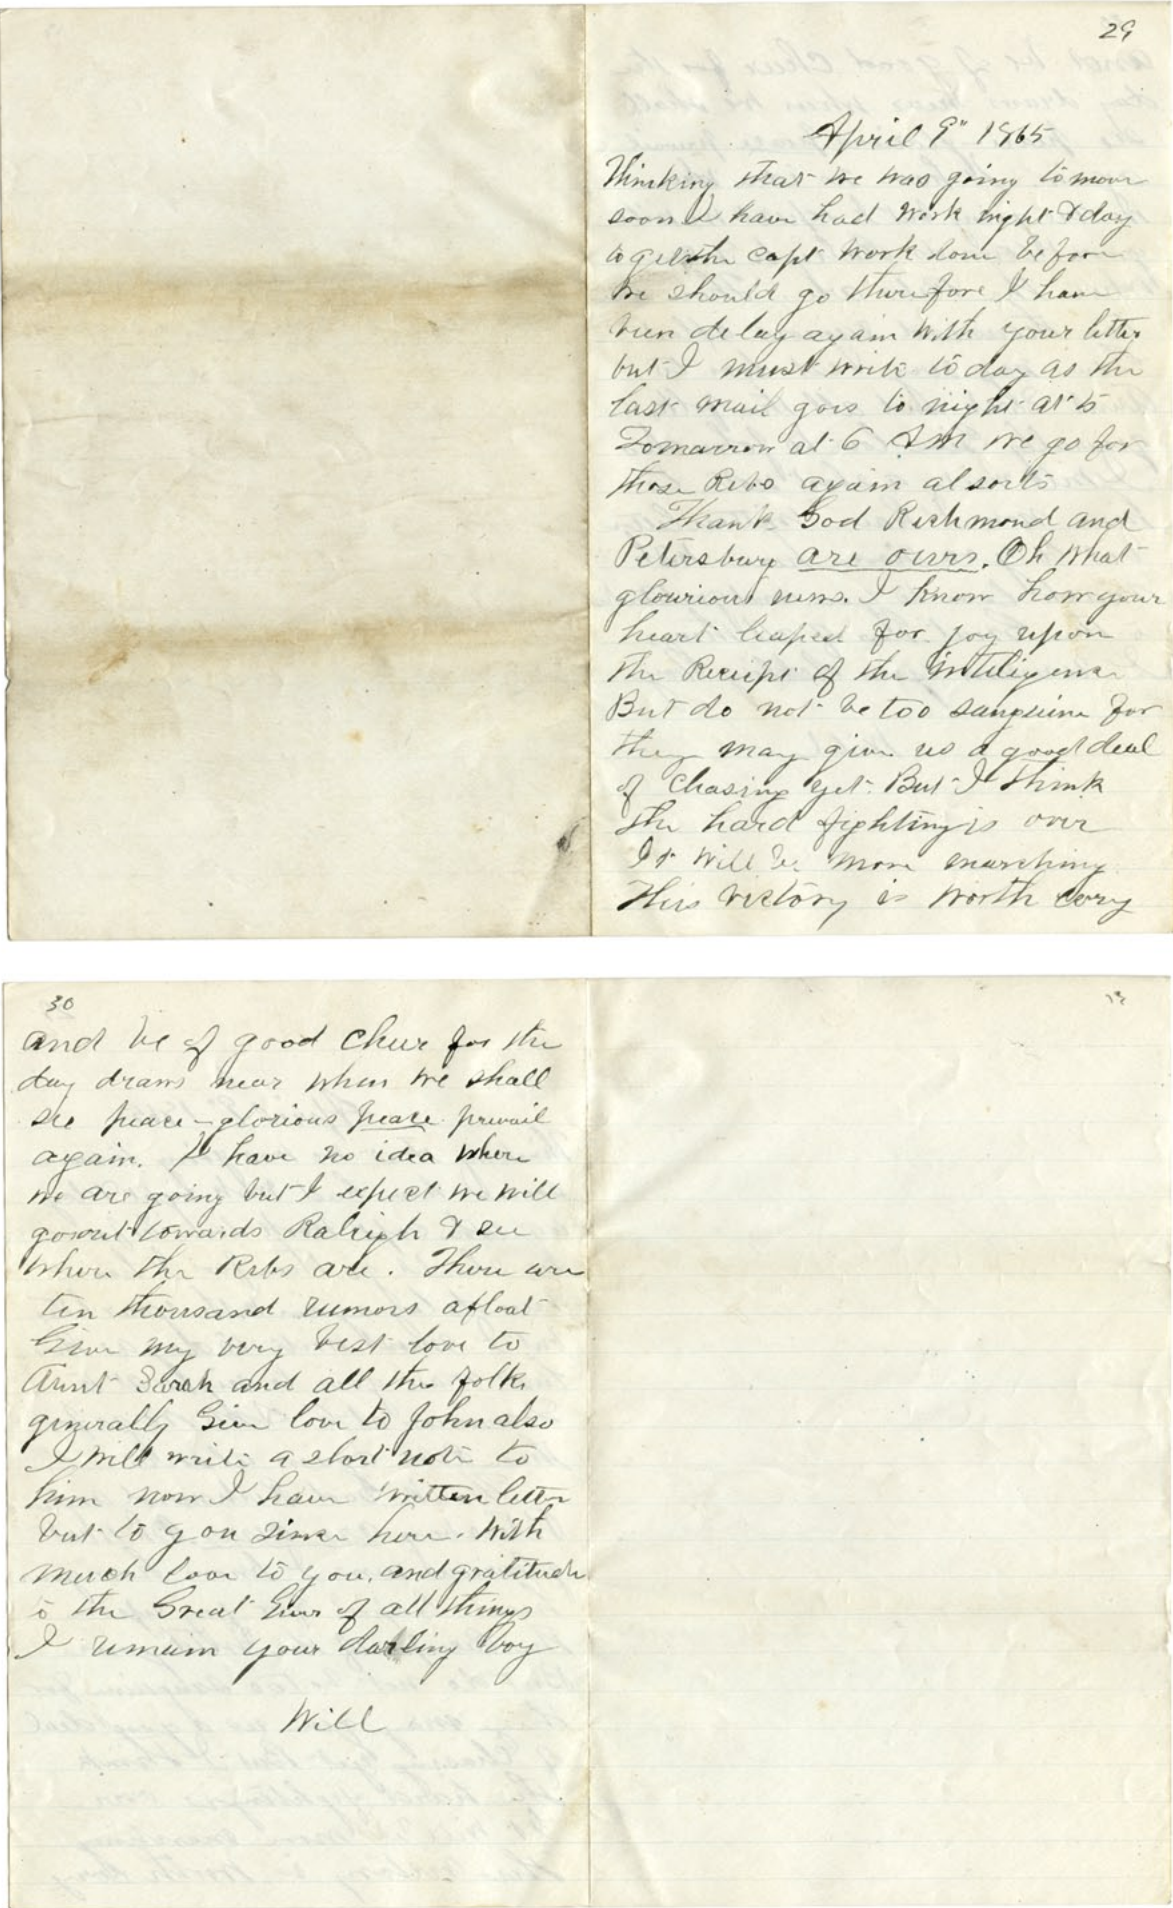 29
April 9" 1865
Thinking that we was going to move
soon I have had work night & day
to get the capt work done before
we should go therefore I have
been delay again with your letter
but I must write to day as the
last mail goes to night at 5
Tomarrow at 6 AM we go for
those Rebs again al sorts
Thank God Richmond and
Petersburg are ours. Oh what
glourious news. I know how your
heart leaped for joy upon
the Receipt of the inteligence
But do not be too sanguine for
they may give us a good deal
of chasing yet. But I think
the hard fighting is over
It will be more marching
This victory is worth
30
and be of good cheer for the
day draws near when we shall
see peace - glorious peace prevail
again. I have no idea where
we are going but I expect we will
go out towards Raleigh & see
where the Rebs are. There are
ten thousand rumors afloat
Give my very best love to
Aunt Sarah and all the folks
generally Give love to John also
I will write a short note to
him now I have written letter
but to you since here. With
much love to you, and gratitude
to the Great Giver of all things
I remain your darling boy
Will